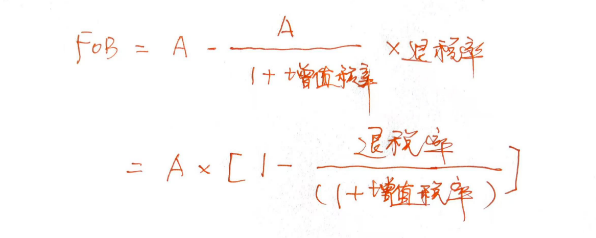 FOB = A - A / (1+增值税率) × 退税率
= A × [1 - 退税率 / (1+增值税率)]